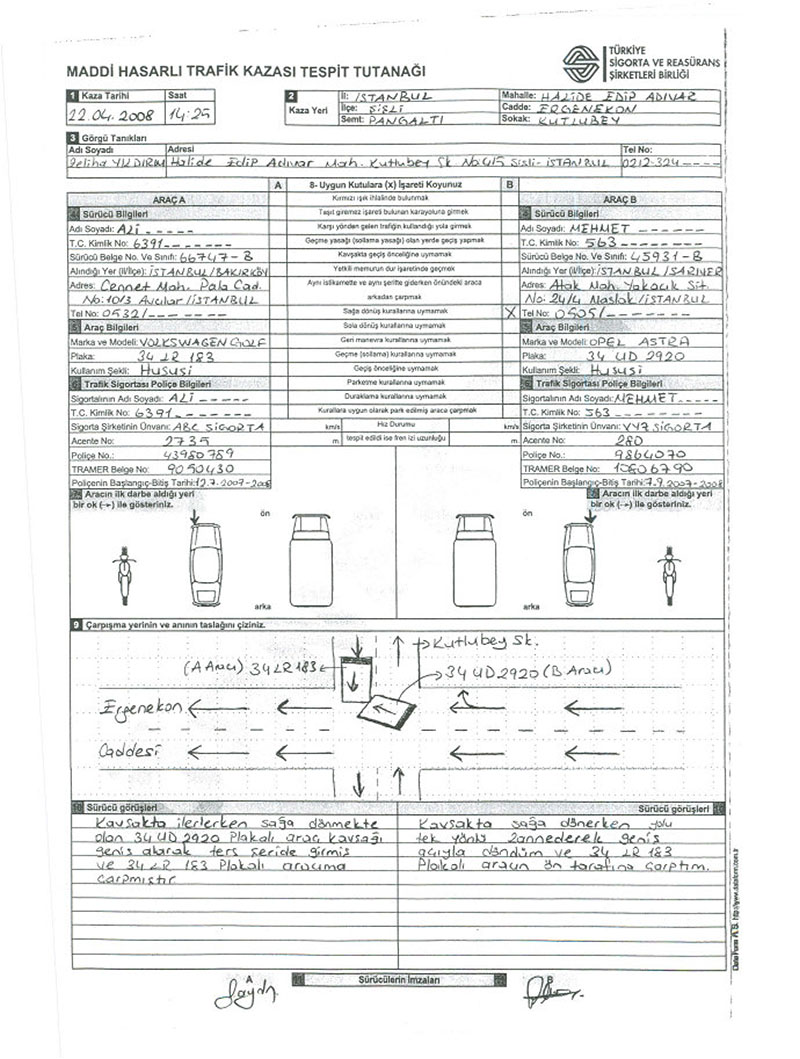 MADDİ HASARLI TRAFİK KAZASI TESPİT TUTANAĞI
TÜRKİYE
SİGORTA VE REASÜRANS
ŞİRKETLERİ BİRLİĞİ
1 Kaza Tarihi Saat
22.04.2008 14:25
2 Kaza Yeri
İl: İSTANBUL
İlçe: ŞİŞLİ
Semt: PANGALTI
Mahalle: HALİDE EDİP ADIVAR
Cadde: ERGENEKON
Sokak: KUTLUBEY
3 Görgü Tanıkları
Adı Soyadı Adresi Tel No:
YILDIRIM Halide Edip Adıvar Mah. Kutlubey Sk. No:4/5 Şişli-İSTANBUL 0212-324----
A 8- Uygun Kutulara (x) İşareti Koyunuz B
ARAÇ A
4 Sürücü Bilgileri
Adı Soyadı: ALİ -----
T.C. Kimlik No: 6391-------
Sürücü Belge No. Ve Sınıfı: 66747-B
Alındığı Yer (il/ilçe): İSTANBUL/BAKIRKÖY
Adres: Cennet Mah. Pala Cad.
No:10/3 Avcılar/İSTANBUL
Tel No: 0532/-------
5 Araç Bilgileri
Marka ve Modeli: VOLKSWAGEN GOLF
Plaka: 34 LR 183
Kullanım Şekli: Hususi
6 Trafik Sigortası Poliçe Bilgileri
Sigortalının Adı Soyadı: ALİ -----
T.C. Kimlik No: 6391-------
Sigorta Şirketinin Ünvanı: ABC SİGORTA
Acente No: 2735
Poliçe No.: 43980789
TRAMER Belge No: 9050430
Poliçenin Başlangıç-Bitiş Tarihi: 12.7.2007-2008
Kırmızı ışık ihlalinde bulunmak
Taşıt giremez işareti bulunan karayoluna girmek
Karşı yönden gelen trafiğin kullandığı yola girmek
Geçme yasağı (sollama yasağı) olan yerde geçiş yapmak
Kavşakta geçiş önceliğine uymamak
Yetkili memurun dur işaretinde geçmek
Aynı istikamette ve aynı şeritte giderken önündeki araca
arkadan çarpmak
Sağa dönüş kurallarına uymamak X
Sola dönüş kurallarına uymamak
Geri manevra kurallarına uymamak
Geçme (sollama) kurallarına uymamak
Geçiş önceliğine uymamak
Parketme kurallarına uymamak
Duraklama kurallarına uymamak
Kurallara uygun olarak park edilmiş araca çarpmak
km/s Hız Durumu km/s
m. tespit edildi ise fren izi uzunluğu m.
ARAÇ B
Sürücü Bilgileri
Adı Soyadı: MEHMET ------
T.C. Kimlik No: 563--------
Sürücü Belge No. Ve Sınıfı: 45931-B
Alındığı Yer (il/ilçe): İSTANBUL/SARIYER
Adres: Atak Mah. Yakacık Sit.
No: 24/4 Maslak/İSTANBUL
Tel No: 0505/-------
Araç Bilgileri
Marka ve Modeli: OPEL ASTRA
Plaka: 34 UD 2920
Kullanım Şekli: Hususi
Trafik Sigortası Poliçe Bilgileri
Sigortalının Adı Soyadı: MEHMET-----
T.C. Kimlik No: 563--------
Sigorta Şirketinin Ünvanı: SİGORTA
Acente No: 280
Poliçe No: 9864070
TRAMER Belge No: 10806790
Poliçenin Başlangıç-Bitiş Tarihi: 7.9.2007-2008
Aracın ilk darbe aldığı yeri
bir ok (→) ile gösteriniz.
ön
arka
Aracın ilk darbe aldığı yeri
bir ok (→) ile gösteriniz.
ön
arka
9 Çarpışma yerinin ve anının taslağını çiziniz.
Kutlubey Sk.
(A Aracı) 34 LR 183
34 UD 2920 (B Aracı)
Ergenekon
Caddesi
10 Sürücü görüşleri
Kavşakta ilerlerken sağa dönmekte
olan 34 UD 2920 Plakalı araç kavşağı
geniş alarak ters şeride girmiş
ve 34 LR 183 Plakalı aracıma
çarpmıştır
Sürücü görüşleri 10
Kavşakta sağa dönerken yolu
tek yönlü zannederek geniş
açıyla döndüm ve 34 LR 183
Plakalı aracın ön tarafına çarptım.
A 11 Sürücülerin İmzaları B